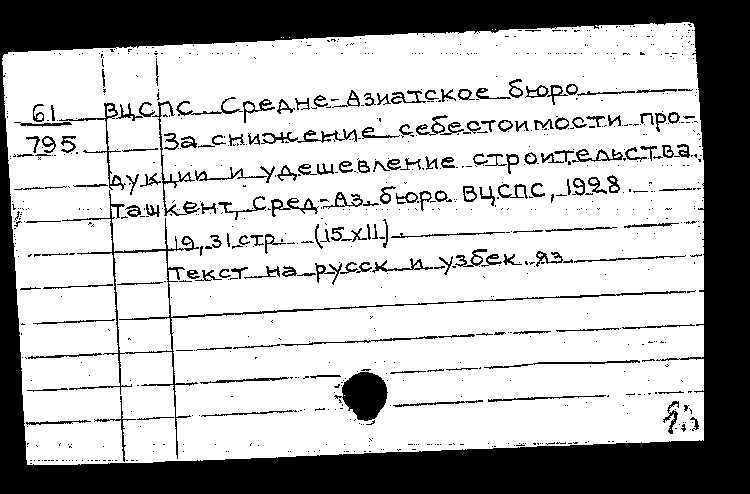 61 ВЦСПС Средне-Азиатское бюро.
795 За снижение себестоимости про-
дукции и удешевление строительства.
Ташкент, Сред-Аз. бюро ВЦСПС, 1928.
19, 31 стр. (15 XII).
Текст на русск и узбек. яз